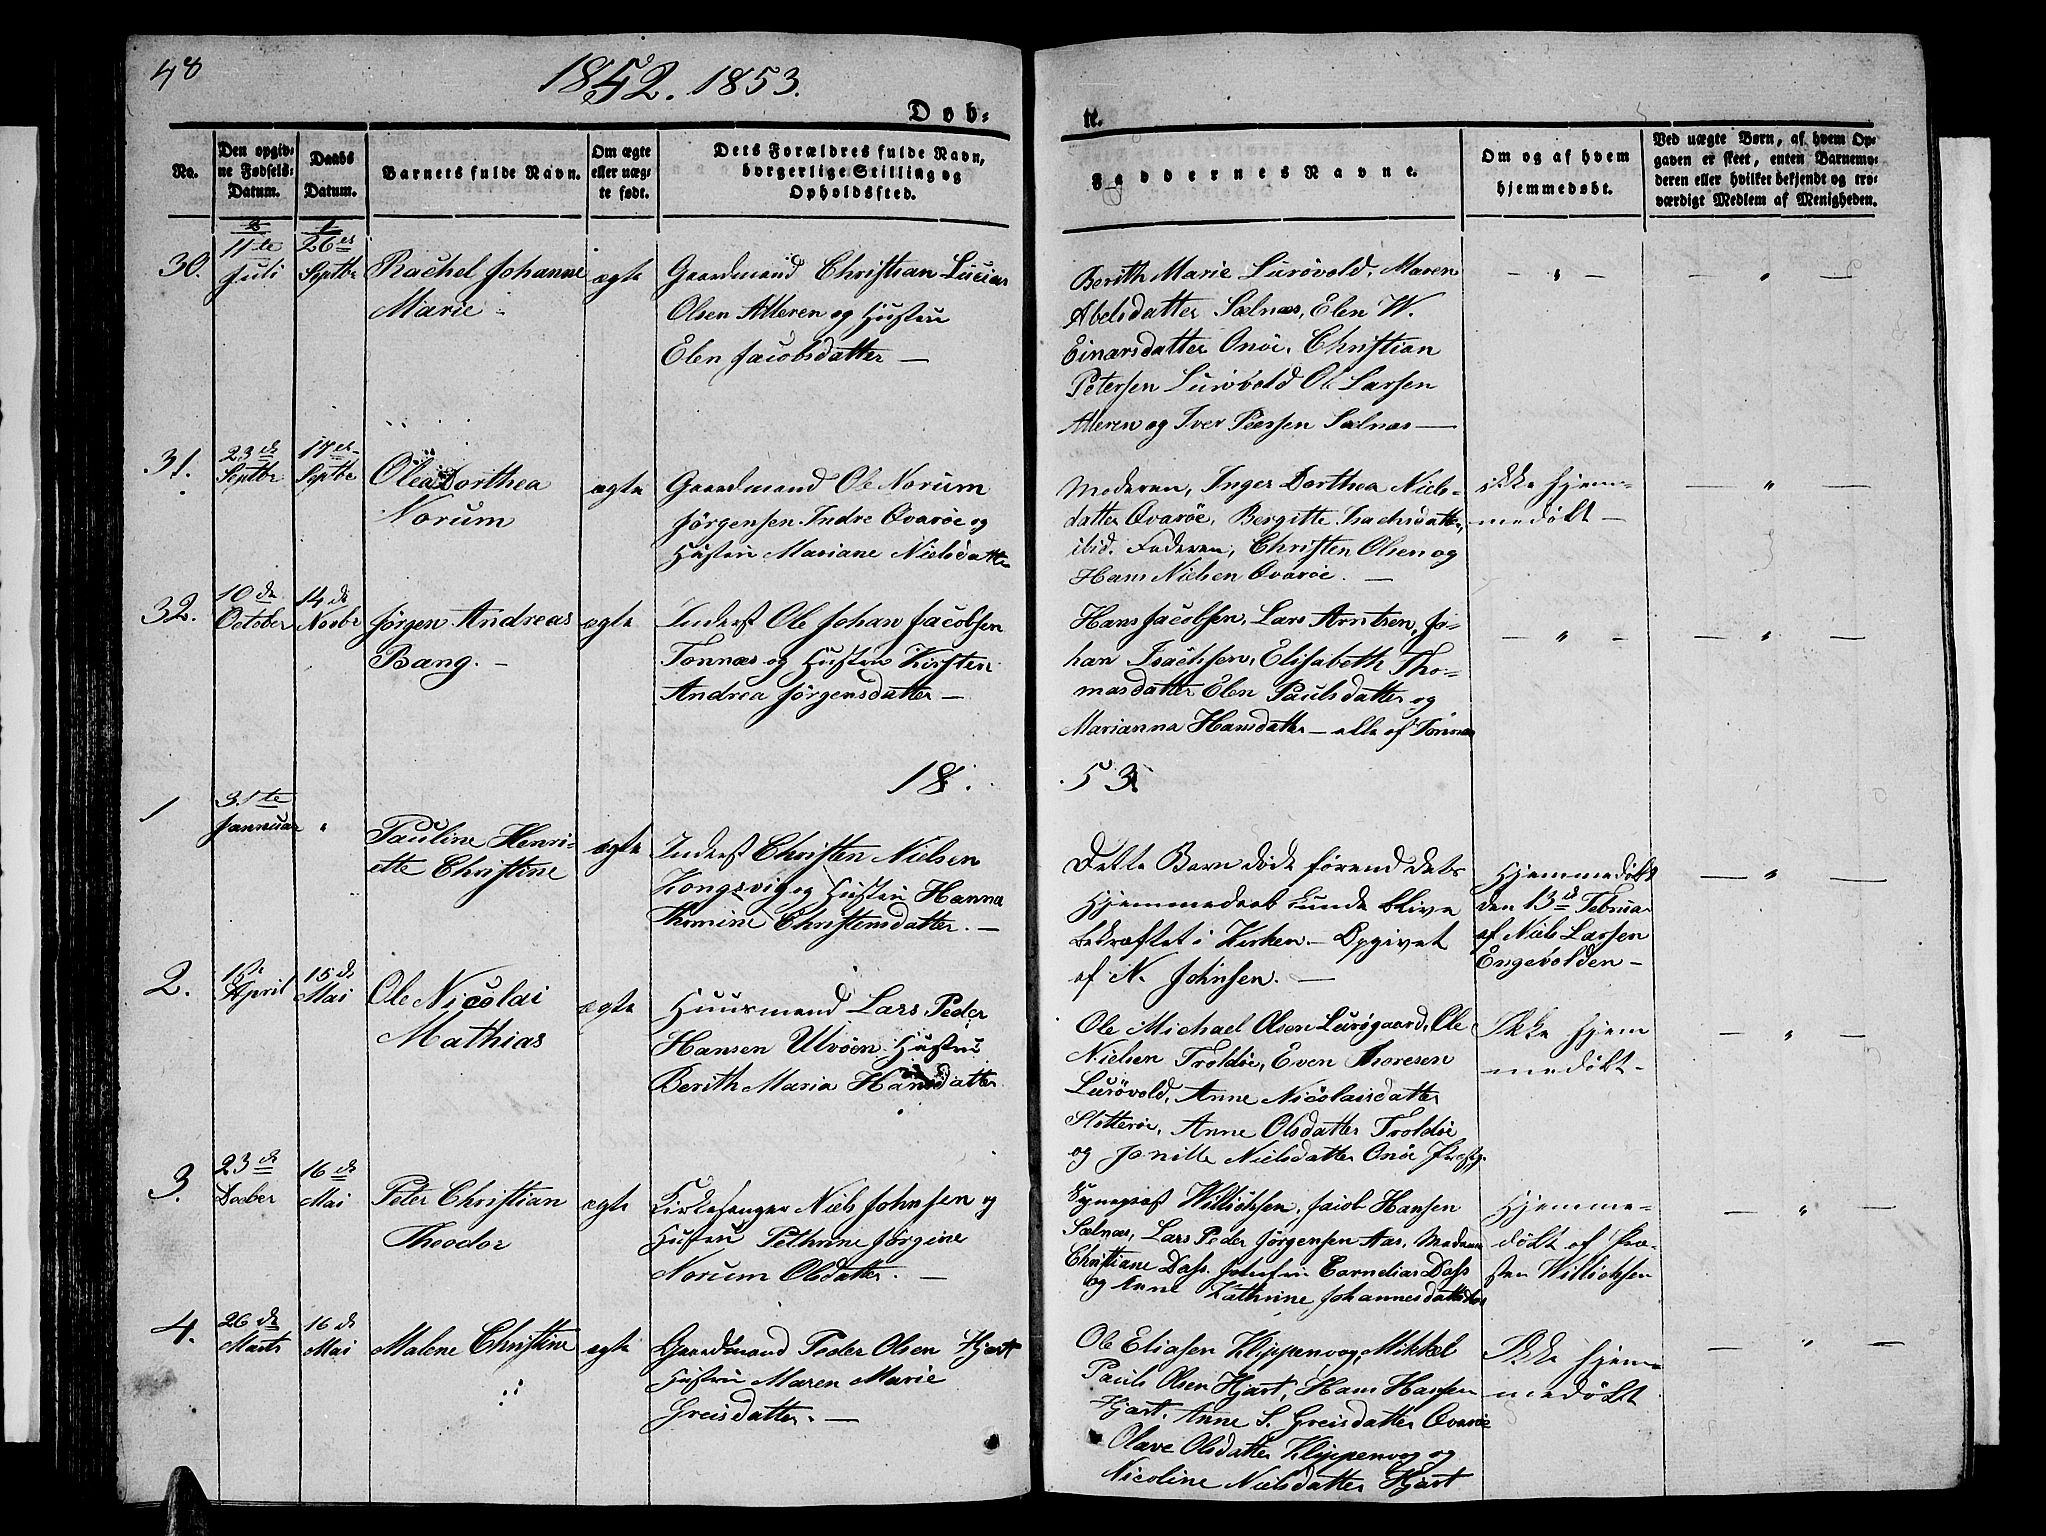 48
1852. 1853.
Døb-
te.
No.
Den opgiv-
ne Fødsels-
Datum.
Daabs
Datum.
Barnets fulde Navn.
Om ægte
eller uæg-
te født.
Dets Forældres fulde Navn,
borgerlige Stilling og
Opholdssted.
Faddernes Navne.
Om og af hvem
hjemmedøbt.
Ved uægte Børn, af hvem Op-
gaven er skeet, enten Barnemo-
deren eller hvilket bekjendt og tro-
værdigt Medlem af Menigheden.
30.
11te
Juli
26de
Septbr
Rachel Johanne
Marie
ægte
Gaardmand Christian Lucias
Olsen Alteren og Hustru
Elen Jacobsdatter —
Berith Marie Lurøvold, Maren
Abelsdatter Sælnæs, Elen W.
Einarsdatter Onøe, Christian
Petersen Lurøvold Ole Larsen
Alteren og Iver Peersen Sælnæs —
— " —
— " —
31.
23de
Septbr
17de
Septbr
Olea Dorthea
Norum
ægte
Gaardmand Ole Norum
Jørgensen Indre Qvarøe og
Hustru Mariane Nielsdatter
Moderen, Inger Dorthea Niels-
datter Qvarøe, Bergitte Isachsdatter,
ibid. Faderen, Christen Olsen og
Hans Nielsen Qvarøe. —
ikke hjem-
medøbt —
— " —
32.
10de
October
14de
Novbr
Jørgen Andreas
Bang. —
ægte
Inderst Ole Johan Jacobsen
Tonnæs og Hustru Kirsten
Andrea Jørgensdatter —
Hans Jacobsen, Lars Arntsen, Jo-
han Isachsen, Elisabeth Tho-
masdatter Elen Paulsdatter og
Marianna Hansdatter — alle af Tonnæs
— " —
— " —
18
53
1
31te
Januar
"
Pauline Henri-
ette Christine
ægte
Inderst Christen Nielsen
Kongsvig og Hustru Hanna
Thomine Christensdatter. —
Dette Barn døde førend dets
Hjemmedaab kunde blive
bekræftet i Kirken — Opgivet
af N. Johnsen. —
Hjemmedøbt
den 13de Februar
af Niels Larsen
Engevolden —
— " —
2.
April
15de
Mai
Ole Nicolai
Mathias
ægte
Huusmand Lars Peder
Hansen Ulvøen Hustru
Berith Maria Hansdatter
Ole Michael Olsen Lurøgaard, Ole
Nielsen Troldøe, Even Thoresen
Lurøvold, Anne Nicolaisdatter
Slotterøe, Anne Olsdatter Troldøe
og Jonille Nielsdatter Onøe
Ikke hjem
medøbt —
— " —
3.
23de
Decber
16de
Mai
Peter Christian
Theodor
ægte
Kirkesanger Niels Johnsen og
Hustru Pethrine Jørgine
Norum Olsdatter. —
Willichsen, Jacob Hansen
Sælnæs, Lars Peder Jørgensen Aas, Madame
Christiane Dass. Jomfru Cornelias Dass
og Anne Kathrine Johannesdatter
Hjemme-
døbt af Præ-
sten Willichsen
— " —
4.
26de
Marts
16de
Mai
Malene Christine
ægte
Gaardmand Peder Olsen Hjart
Hustru Maren Marie
Greisdatter. —
Ole Eliasen Klippenvog, Mikkel
Pauls Olsen Hjart, Hans Hansen
Hjart, Anne S. Greisdatter Qvarøe
Olave Olsdatter Klippenvog og
Nicoline Nielsdatter Hjart
Ikke hjem
medøbt
" —